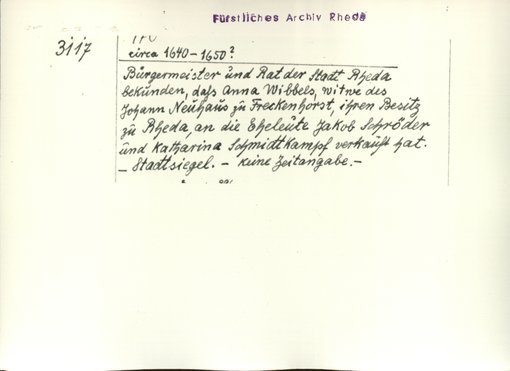 Fürstliches Archiv Rheda
3117
circa 1640-1650?
Bürgermeister und Rat der Stadt Rheda
bekunden, daß Anna Wibbels, witwe des
Johann Neuhaus zu Freckenhorst, ihren Besitz
zu Rheda, an die Eheleute Jakob Schröder
und Katharina Schmidtkampf verkauft hat.
- Stadtsiegel. - Keine Zeitangabe. -